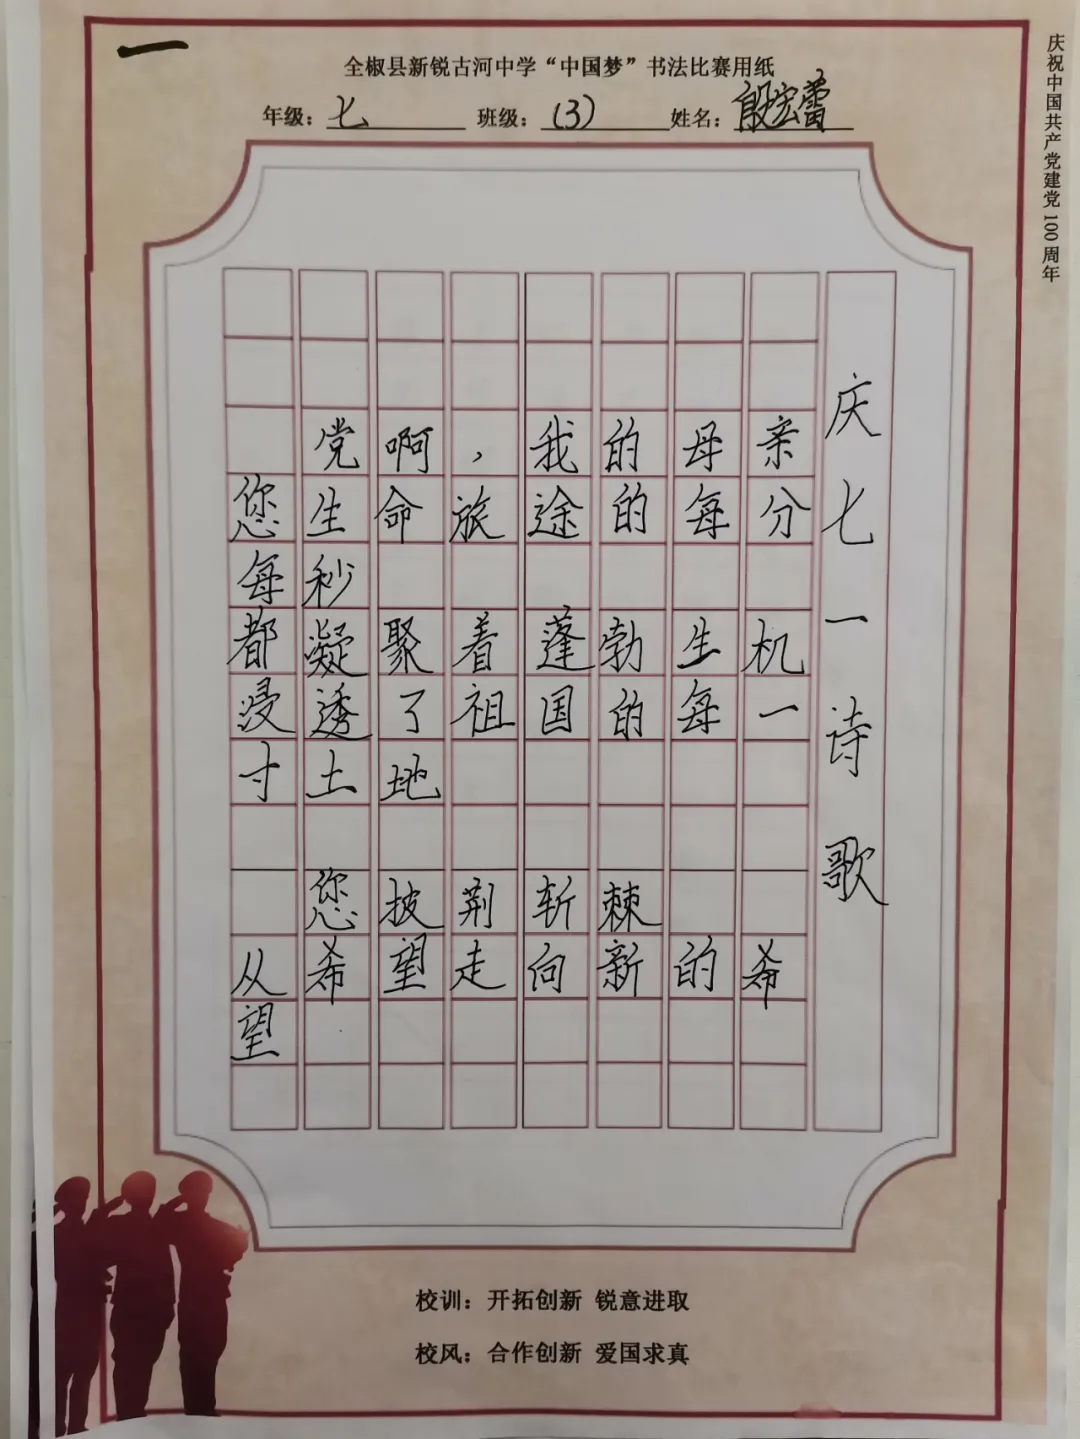 一
全椒县新锐古河中学“中国梦”书法比赛用纸
年级：七 班级：(3) 姓名：殷宏蕾
庆祝中国共产党建党100周年
庆七一诗歌
党啊，我的母亲
您生命旅途的每分
每秒
都凝聚着蓬勃生机
浸透了祖国的每一
寸土地
您披荆斩棘
从希望走向新的希
望
校训：开拓创新 锐意进取
校风：合作创新 爱国求真